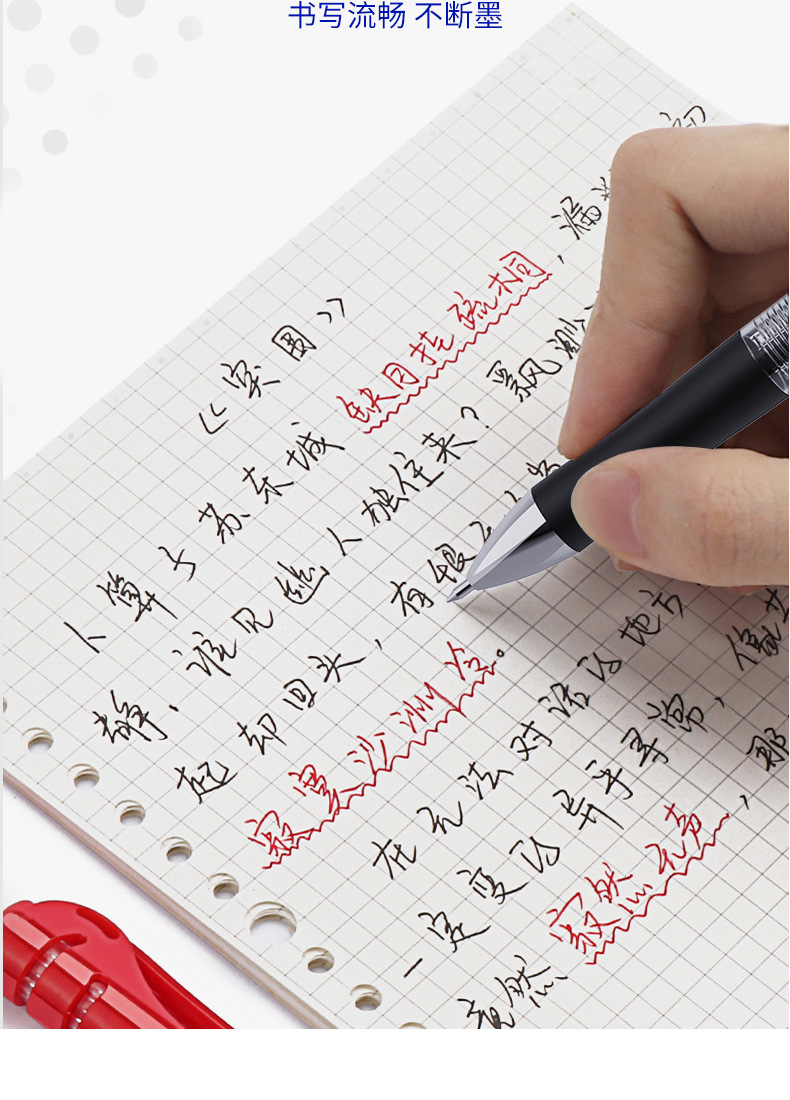 书写流畅 不断墨
《突围》
卜算与苏东城 缺月挂疏桐，漏
静、谁见幽人独往来？飘渺
起却回头，有恨无人省
寂寞沙洲冷。
在无法对话的地方
一定变的异乎寻常，像
竟然寂然无声，那